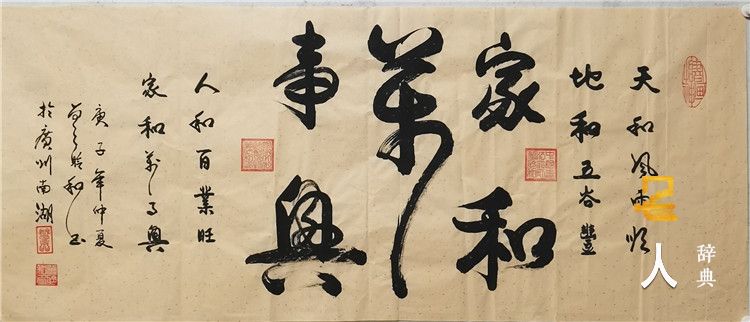 天和风雨顺
地和五谷豐
家和
萬
事興
人和百業旺
家和萬事興
庚子年仲夏
和书
於廣州南湖
人
辞典